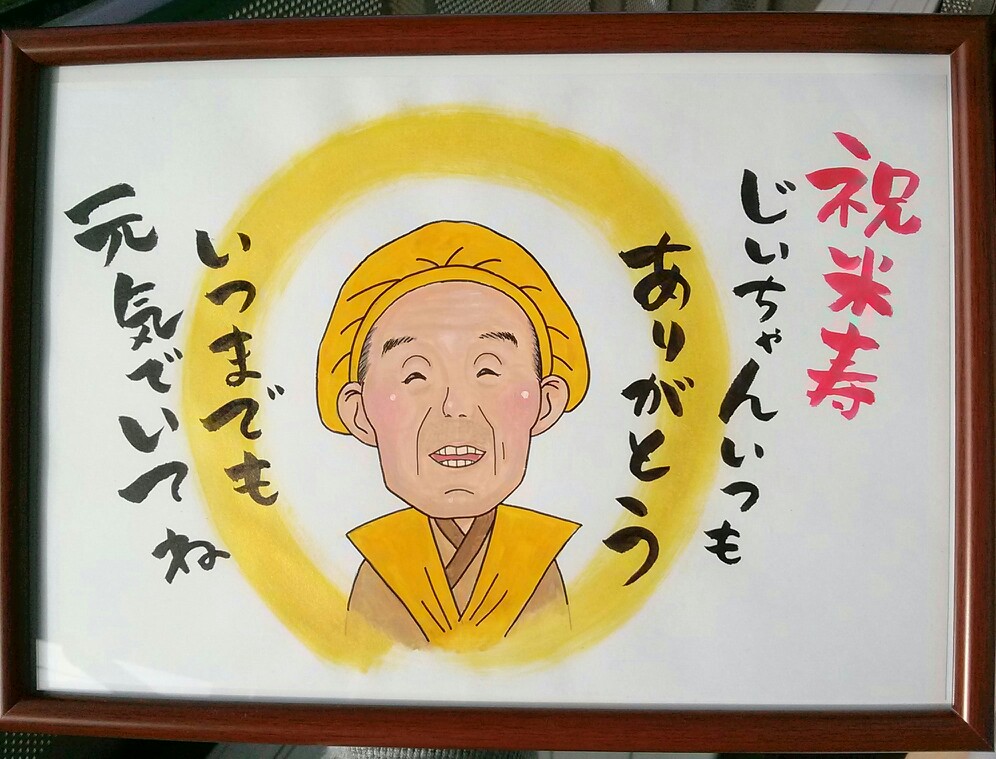 祝米寿
じいちゃんいつも
ありがとう
いつまでも
元気でいてね